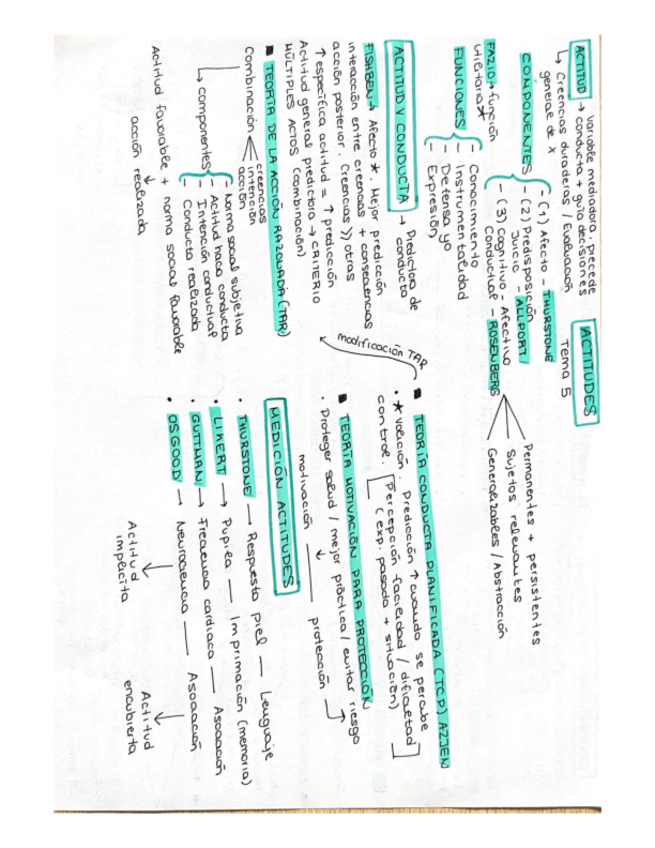 ACTITUDES
Tema 5
ACTITUD → variable mediadora, precede
conducta + guía decisiones
↳ Creencias duraderas / Evaluación
general de X
COMPONENTES
- (1) Afecto - THURSTONE
- (2) Predisposición - ALLPORT
Juicio
- (3) Cognitivo - Afectivo
Conductual - ROSENBERG
Permanentes + persistentes
Sujetos relevantes
Generalizables / Abstracción
FAZIO → función
utilitaria *
FUNCIONES
- Conocimiento
- Instrumentalidad
- Defensa yo
- Expresión
ACTITUD Y CONDUCTA → Predictora de
conducta
FISHBEN → Afecto *. Mejor predicción
interacción entre creencias + consecuencias
acción posterior. Creencias >> otras
↑ específica actitud = ↑ predicción
Actitud general predictora → CRITERIO
MÚLTIPLES ACTOS (combinación)
TEORÍA DE LA ACCIÓN RAZONADA (TAR)
Combinación
creencias
intención
acción
↳ componentes
- Norma social subjetiva
- Actitud hacia conducta
- Intención conductual
- Conducta realizada
Actitud favorable + norma social favorable
↓
acción realizada
modificación TAR
TEORÍA CONDUCTA PLANIFICADA (TCP) AZJEN
· * volición. Predicción ↑ cuando se percibe
control. [Percepción facilidad / dificultad
(exp. pasada + situación)]
TEORÍA MOTIVACIÓN PARA PROTECCIÓN
· Proteger salud / mejor práctica / evitar riesgo
↓
motivación — protección
MEDICIÓN ACTITUDES
· THURSTONE → Respuesta piel — Lenguaje
· LIKERT → Pupila — Imprimación (memoria)
· GUTTMAN → Frecuencia cardiaca — Asociación
· OSGOOD → Neurociencia — Asociación
Actitud
implícita
Actitud
encubierta